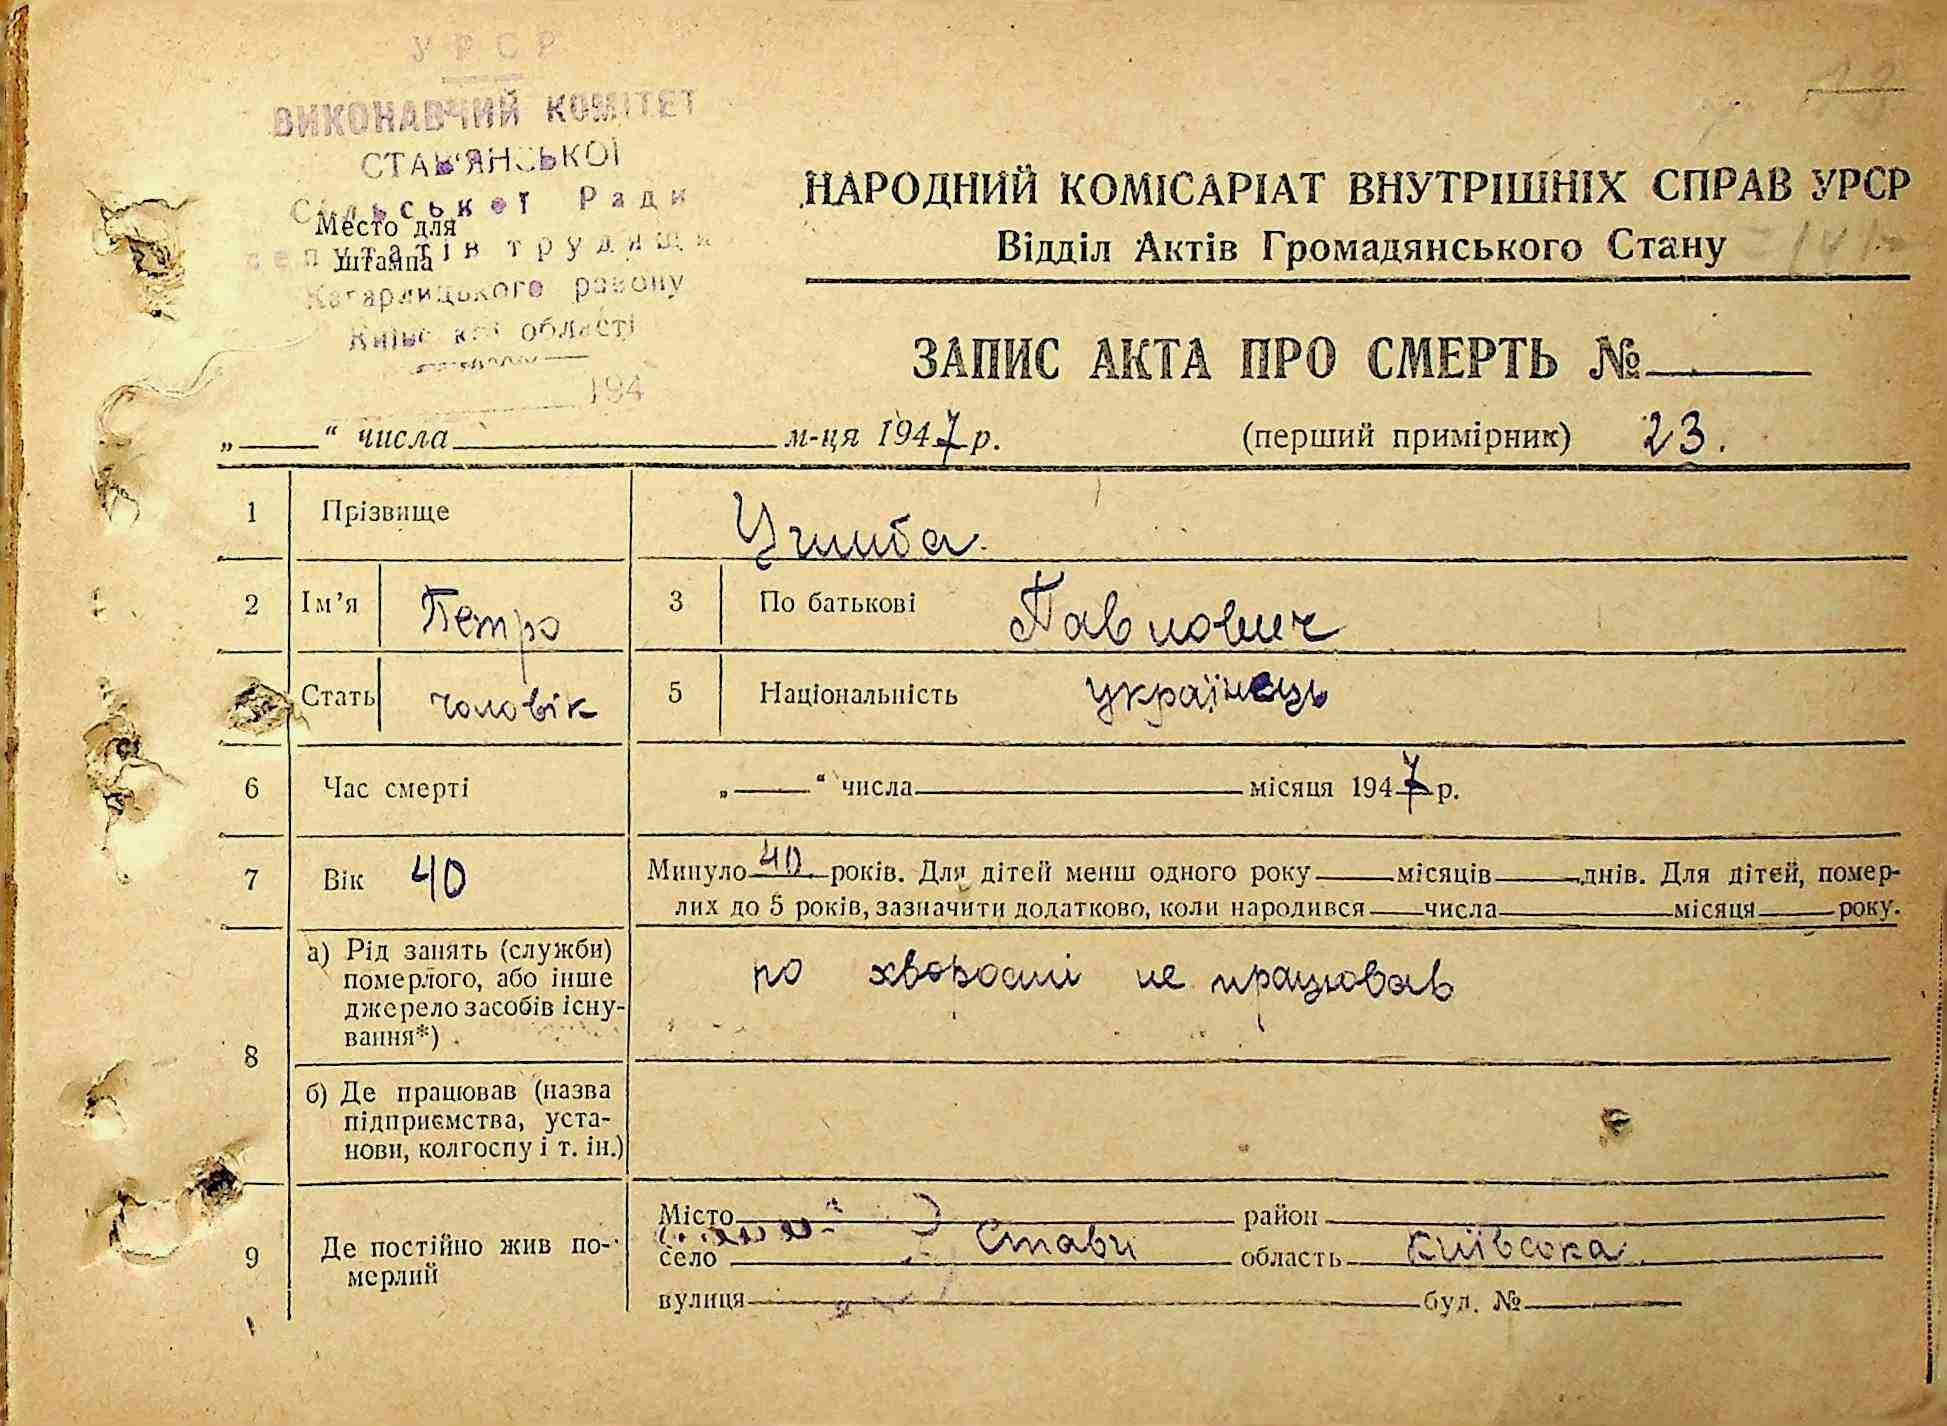 УРСР
ВИКОНАВЧИЙ КОМІТЕТ
СТАВ'ЯНСЬКОЇ
Сільської Ради
депутатів трудящ
Кагарлицького району
Київської області
Место для
штампа
194
НАРОДНИЙ КОМІСАРІАТ ВНУТРІШНІХ СПРАВ УРСР
Відділ Актів Громадянського Стану
ЗАПИС АКТА ПРО СМЕРТЬ №
„ “ числа м-ця 1947 р. (перший примірник) 23.
1 Прізвище
2 Ім’я Петро 3 По батькові Павлович
Стать чоловік 5 Національність українець
6 Час смерті „ “ числа місяця 1947 р.
7 Вік 40 Минуло 40 років. Для дітей менш одного року місяців днів. Для дітей, помер-
лих до 5 років, зазначити додатково, коли народився числа місяця року.
8 а) Рід занять (служби)
померлого, або інше
джерело засобів існу-
вання*)
по хворості не працював
б) Де працював (назва
підприємства, уста-
нови, колгоспу і т. ін.)
9 Де постійно жив по-
мерлий
Місто район
село Стави область київська
вулиця буд. №